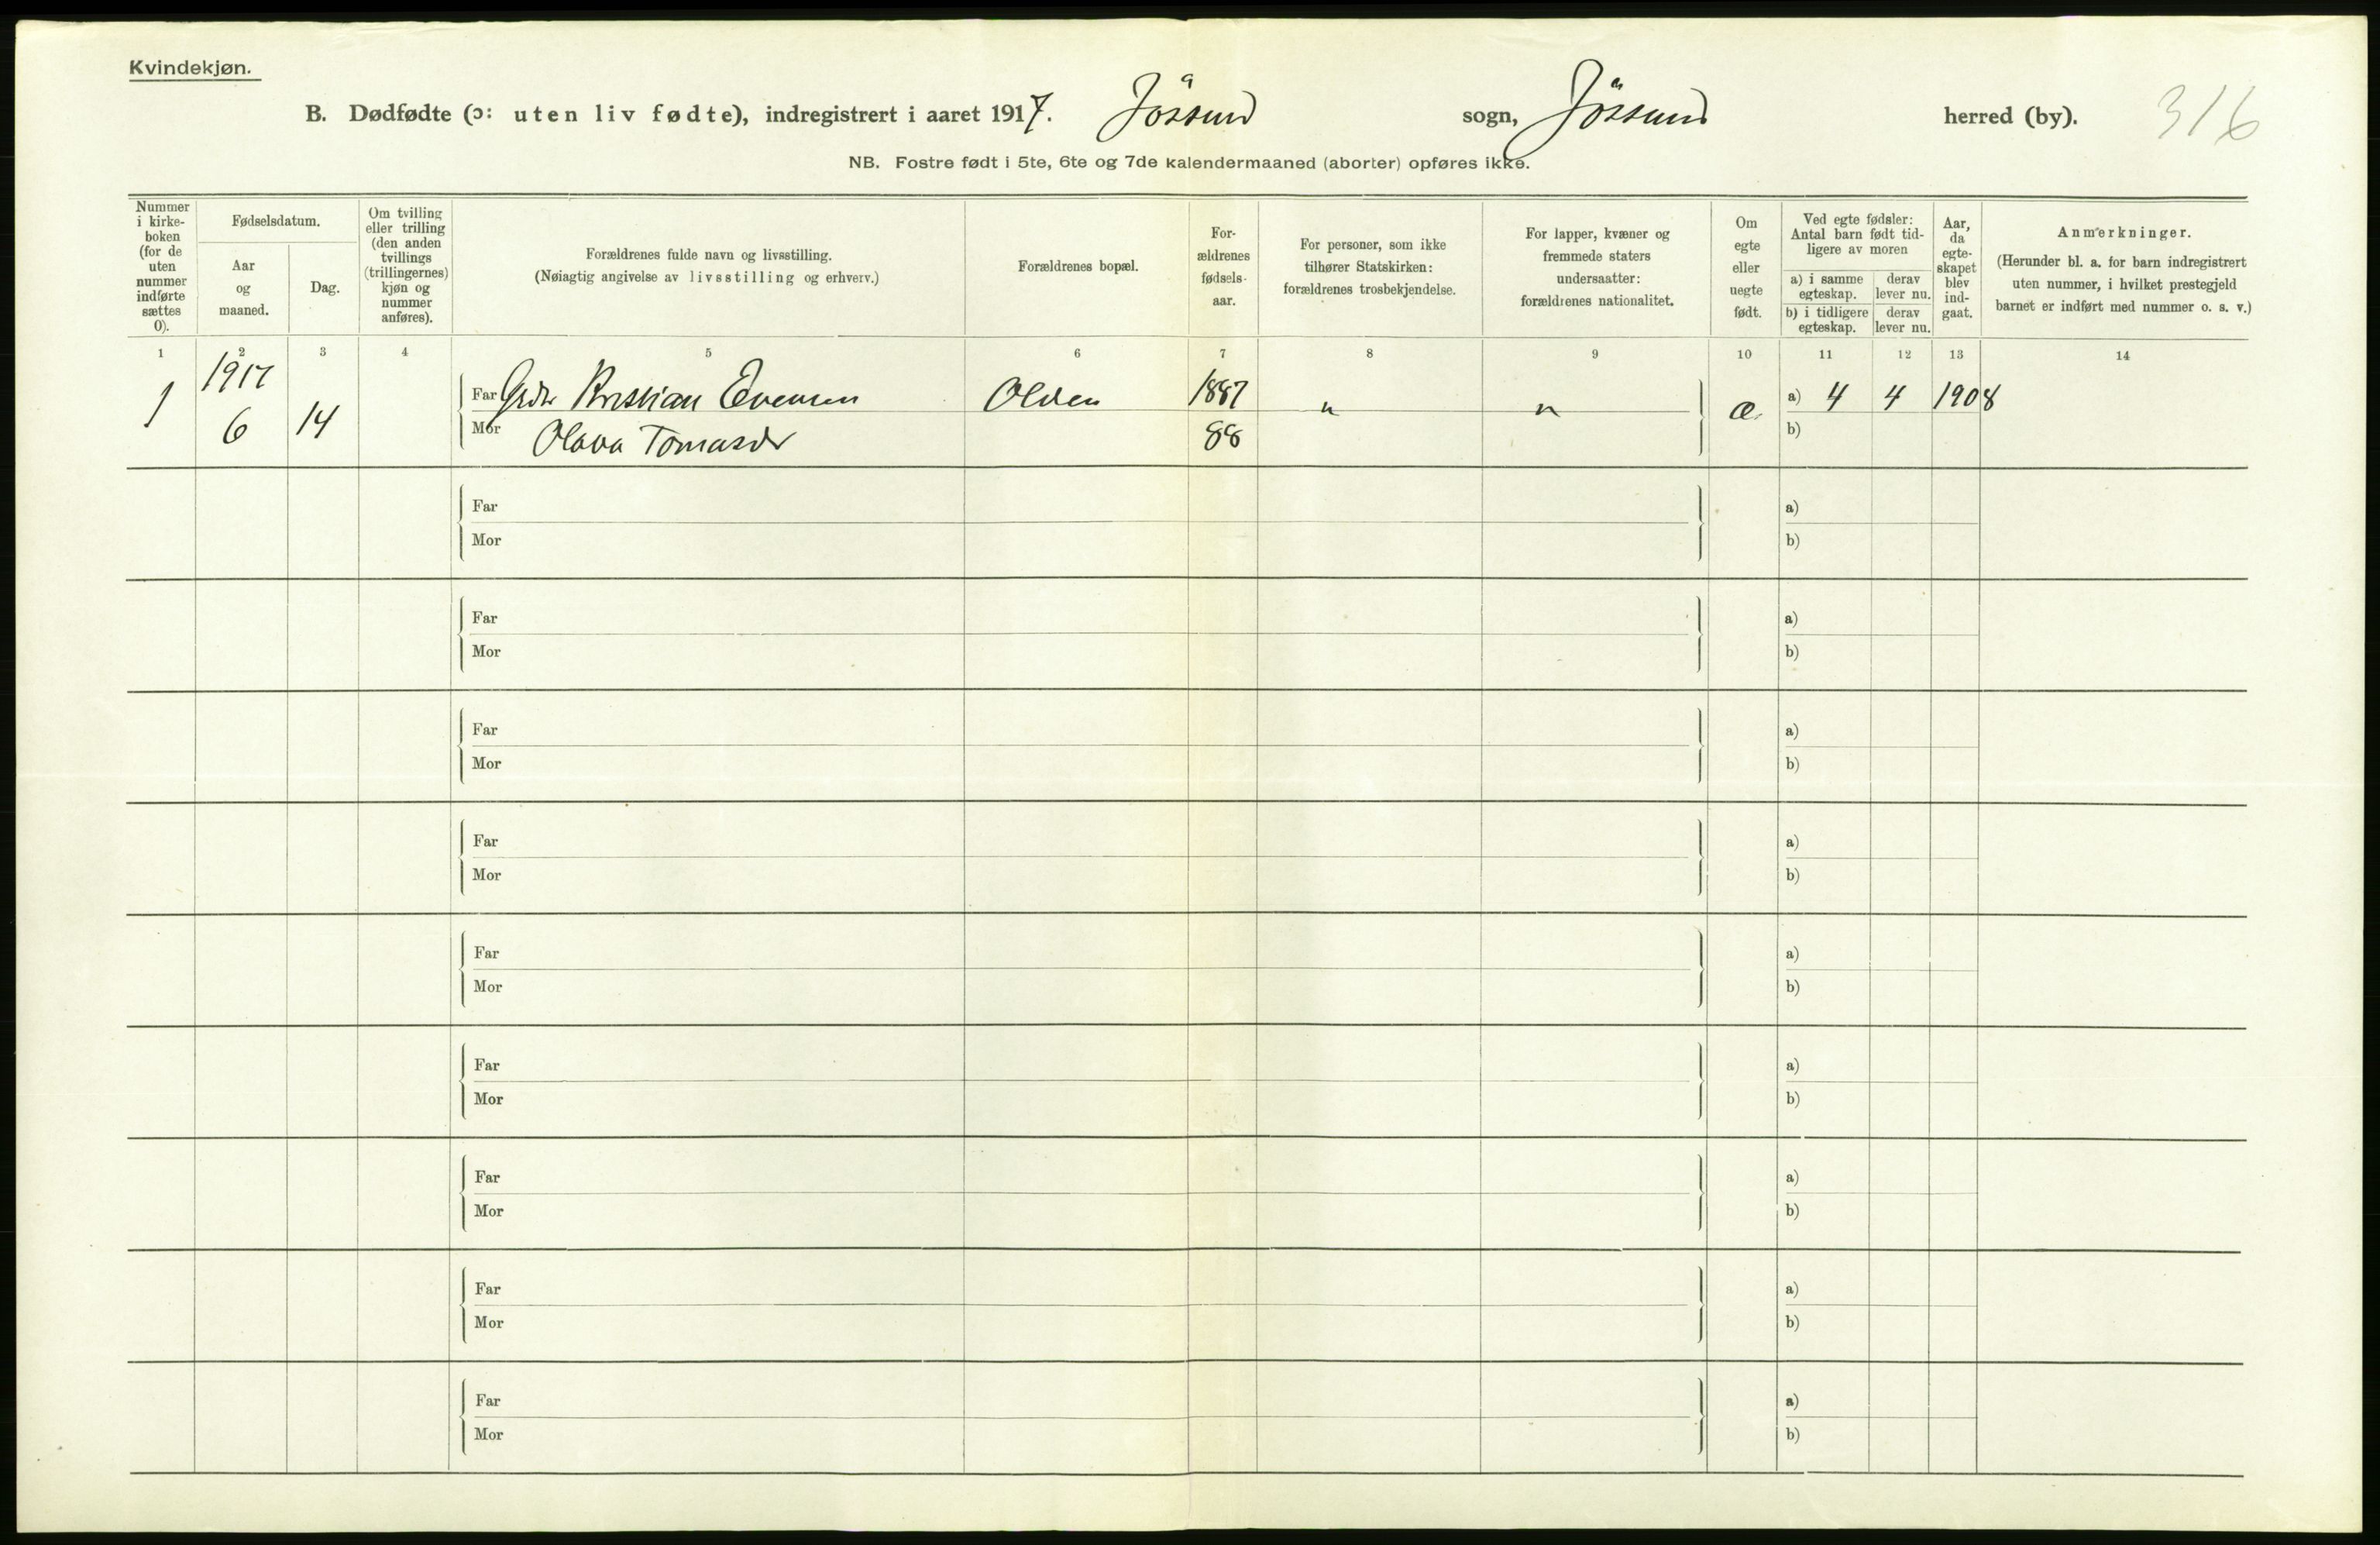 Kvindekjøn.
B. Dødfødte (ɔ: uten liv fødte), indregistrert i aaret 1917. Jössund sogn, Jössund herred (by). 316
NB. Fostre født i 5te, 6te og 7de kalendermaaned (aborter) opføres ikke.
Nummer i kirke- boken (for de uten nummer indførte sættes 0).
Fødselsdatum.
Aar og maaned.
Dag.
Om tvilling eller trilling (den anden tvillings (trillingernes) kjøn og nummer anføres).
Forældrenes fulde navn og livsstilling.
(Nøiagtig angivelse av livsstilling og erhverv.)
Forældrenes bopæl.
For- ældrenes fødsels- aar.
For personer, som ikke
tilhører Statskirken:
forældrenes trosbekjendelse.
For lapper, kvæner og
fremmede staters
undersaatter:
forældrenes nationalitet.
Om egte eller uegte født.
Ved egte fødsler:
Antal barn født tid-
ligere av moren
a) i samme egteskap.
derav lever nu.
b) i tidligere egteskap.
derav lever nu.
Aar, da egte- skapet blev ind- gaat.
Anmerkninger.
(Herunder bl. a. for barn indregistrert
uten nummer, i hvilket prestegjeld
barnet er indført med nummer o. s. v.)
1 2 3 4 5 6 7 8 9 10 11 12 13 14
1917
1 Far Kristian Evensen Olden 1887 " " a) 4 4 1908
6 14 Mor Olava Tomasdr 88 b)
Far a)
Mor b)
Far a)
Mor b)
Far a)
Mor b)
Far a)
Mor b)
Far a)
Mor b)
Far a)
Mor b)
Far a)
Mor b)
Far a)
Mor b)
Far a)
Mor b)